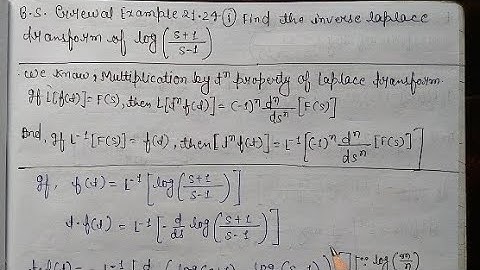 B.S. Grewal Example 21.24 (i) Find the inverse laplace
transform of log(s+1/s-1)
We know, Multiplication by tⁿ property of Laplace transform.
If L[f(t)] = F(s), then L[tⁿf(t)] = (-1)ⁿ dⁿ/dsⁿ [F(s)]
And, If L⁻¹[F(s)] = f(t), then [tⁿf(t)] = L⁻¹[(-1)ⁿ dⁿ/dsⁿ [F(s)]]
If, f(t) = L⁻¹[log(s+1/s-1)]
t·f(t) = L⁻¹[-d/ds log(s+1/s-1)]
t·f(t) = L⁻¹[-d/ds (log(s+1) - log(s-1))] [∵ log(m/n)